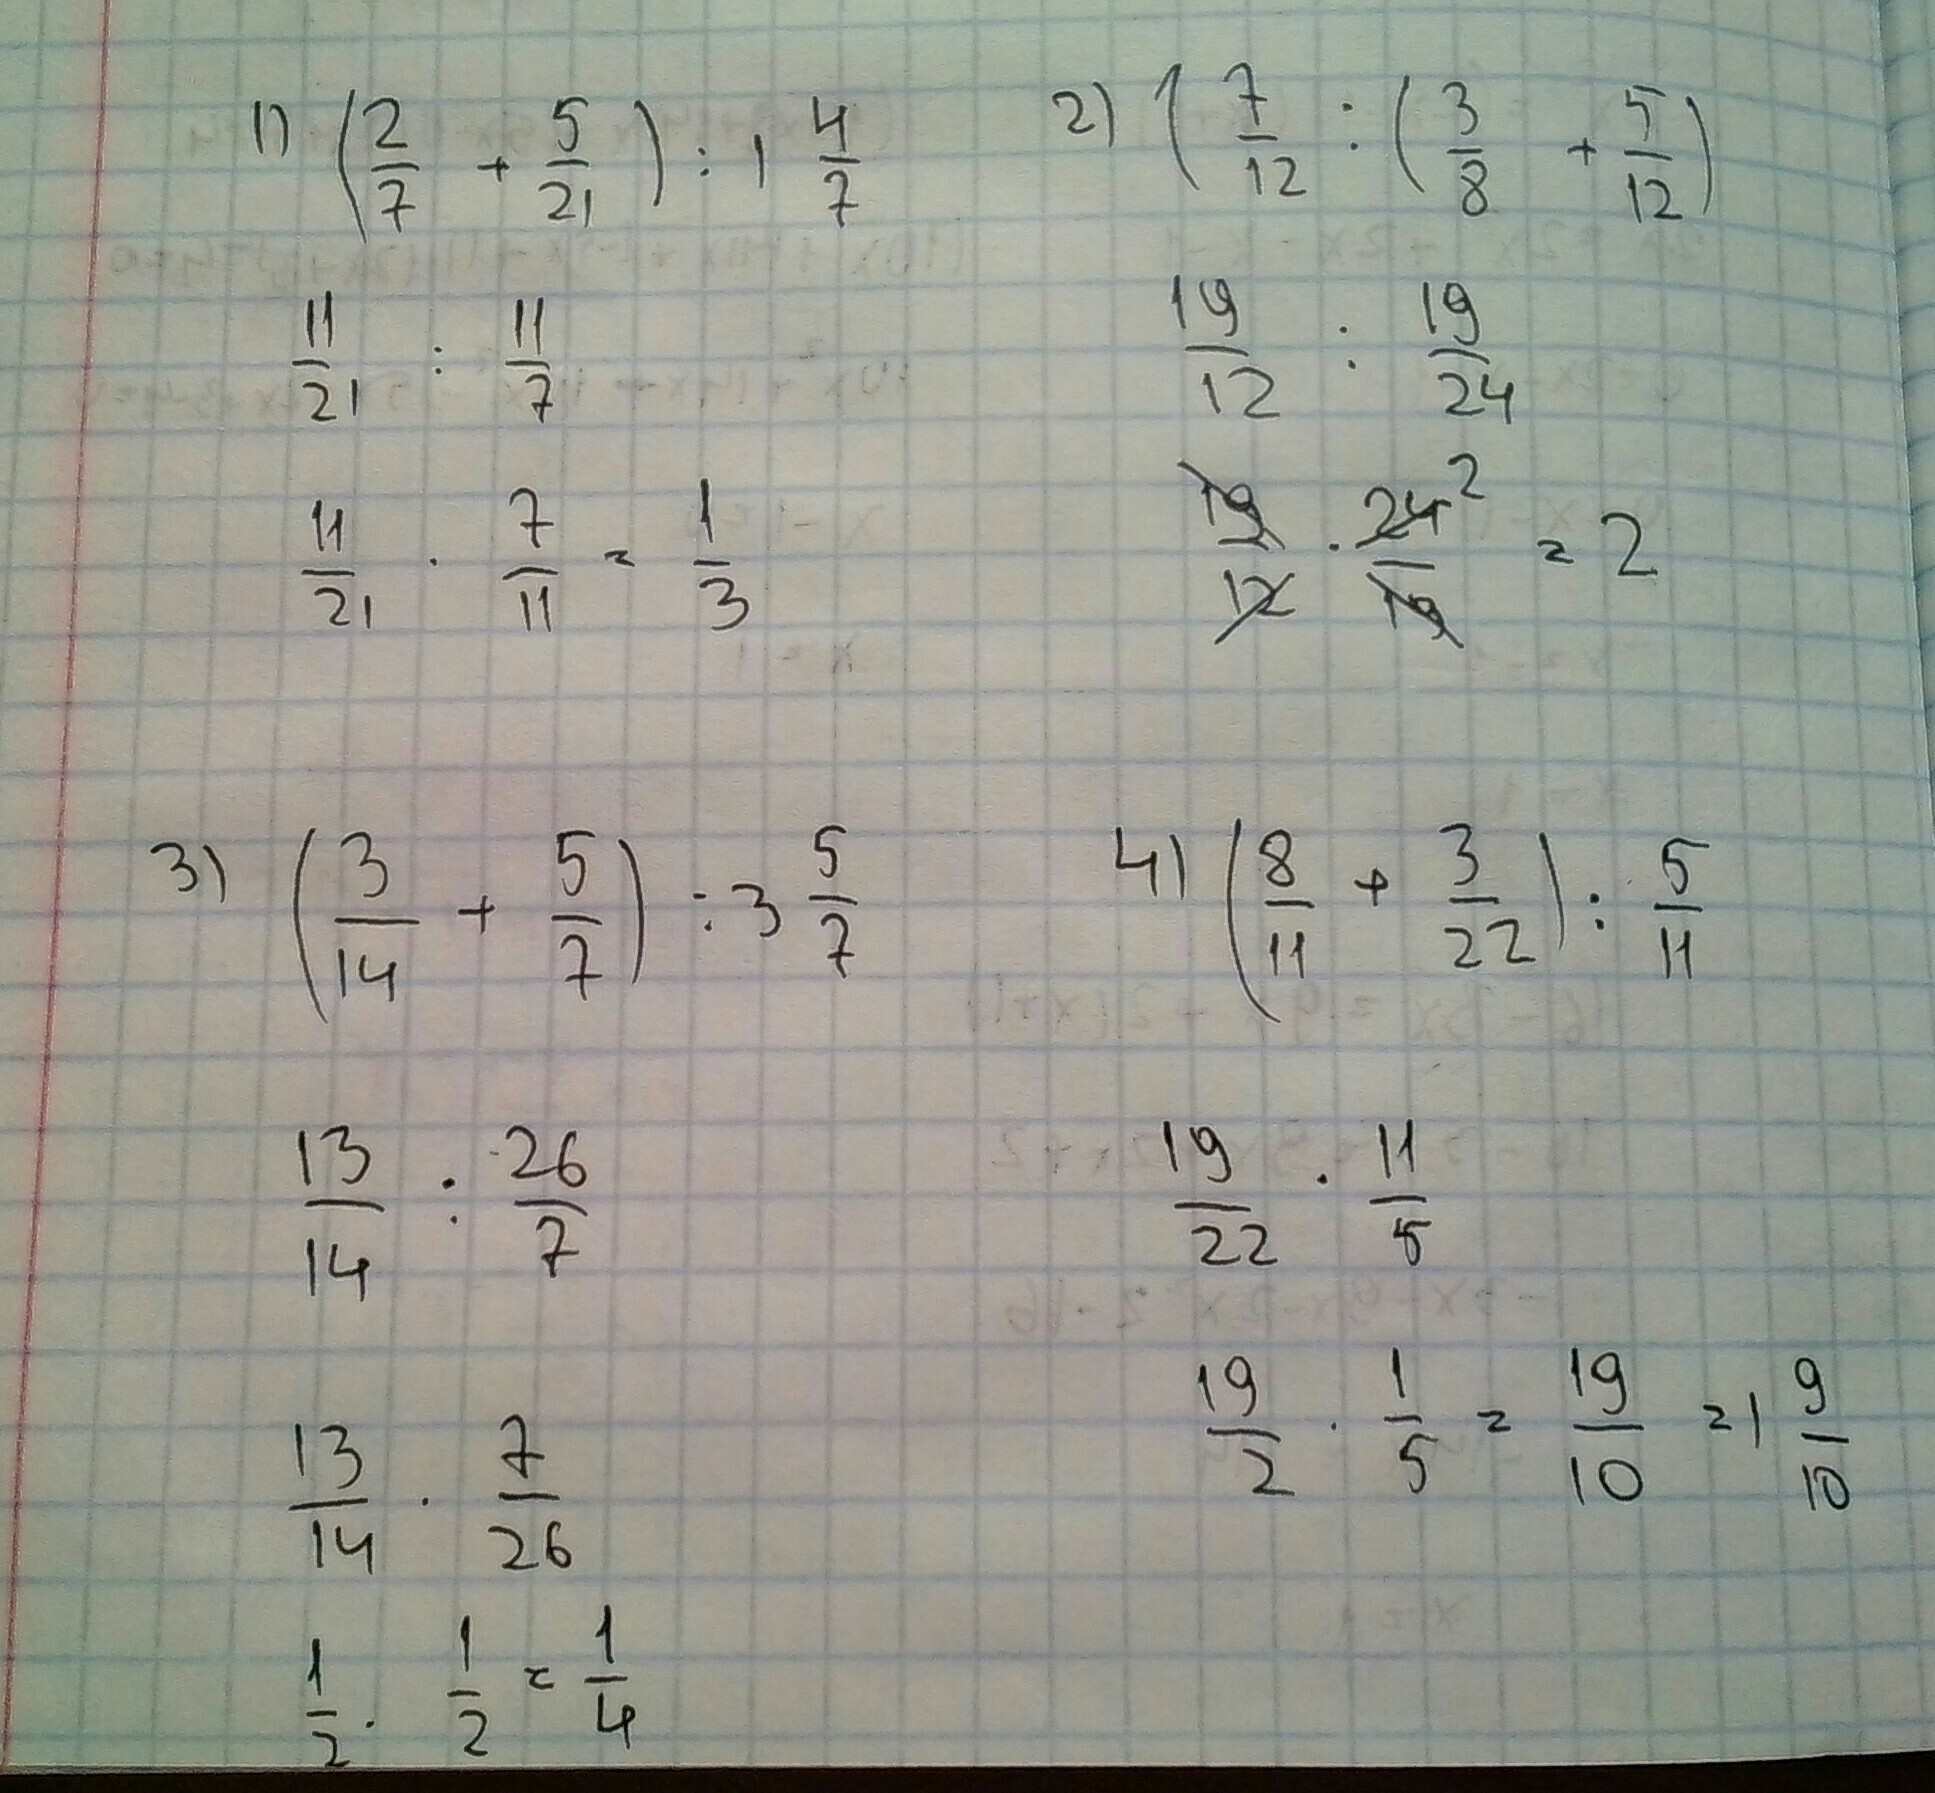 1) (2/7 + 5/21) : 1 4/7
11/21 : 11/7
11/21 · 7/11 = 1/3
2) (7/12 : (3/8 + 5/12)
19/12 : 19/24
19/12 · 24/19 2 = 2
3) (3/14 + 5/7) : 3 5/7
13/14 : 26/7
13/14 · 7/26
1/2 · 1/2 = 1/4
4) (8/11 + 3/22) : 5/11
19/22 · 11/5
19/2 · 1/5 = 19/10 = 1 9/10